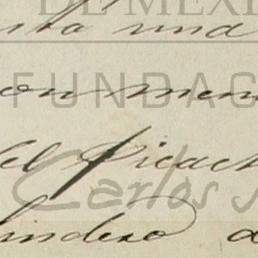 DE MÉXI
una
FUNDAC
con men
del Picach
Carlos S
lindero d